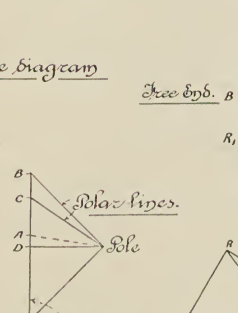 e diagram
Free End. B
R,
B
C
Polar lines.
A
D
Pole
R